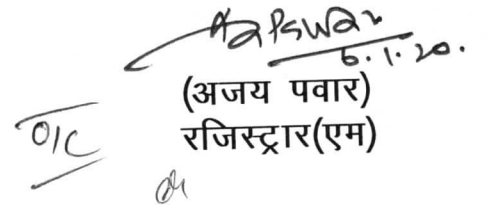 6.1.20.
(अजय पवार)
रजिस्ट्रार(एम)
O/C